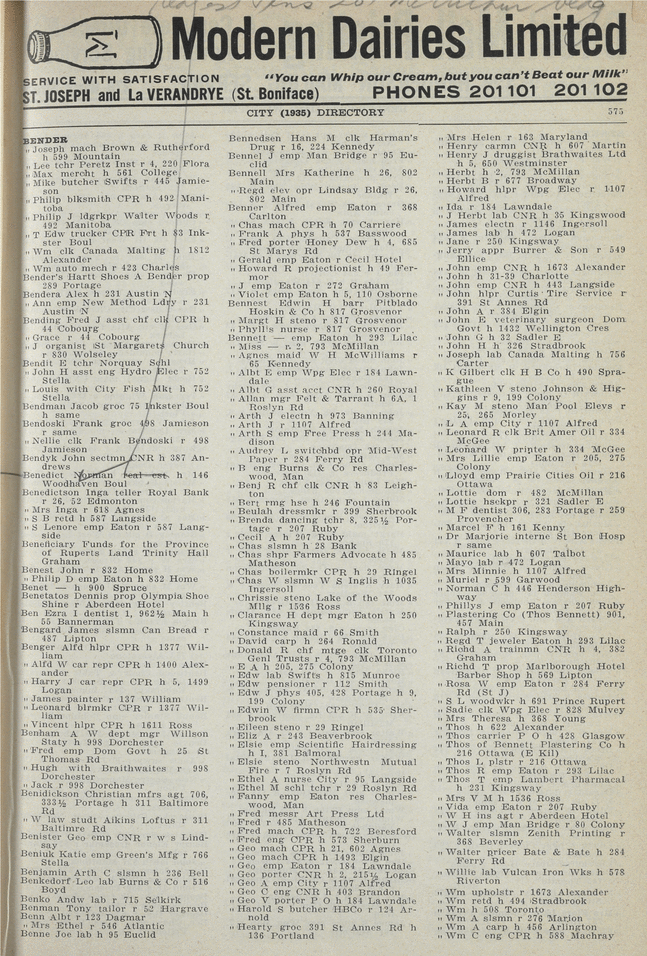 Modern Dairies Limited
M
SERVICE WITH SATISFACTION "You can Whip our Cream, but you can't Beat our Milk"
ST. JOSEPH and La VERANDRYE (St. Boniface) PHONES 201 101 201 102
CITY (1935) DIRECTORY 575
BENDER
" Joseph mach Brown & Rutherford
h 599 Mountain
" Lee tchr Peretz Inst r 4, 220 Flora
" Max mercht h 561 College
" Mike butcher Swifts r 445 Jamie-
son
" Philip blksmith CPR h 492 Mani-
toba
" Philip J ldgrkpr Walter Woods r
492 Manitoba
" T Edw trucker CPR Frt h 83 Ink-
ster Boul
" Wm clk Canada Malting h 1812
Alexander
" Wm auto mech r 423 Charles
Bender's Hartt Shoes A Bender prop
289 Portage
Bendera Alex h 231 Austin N
" Ann emp New Method Ldry r 231
Austin N
Bending Fred J asst chf clk CPR h
44 Cobourg
" Grace r 44 Cobourg
" J organist St Margarets Church
r 830 Wolseley
Bendit E tchr Norquay Schl
" John H asst eng Hydro Elec r 752
Stella
" Louis with City Fish Mkt h 752
Stella
Bendman Jacob groc 75 Inkster Boul
r same
Bendoski Frank groc 498 Jamieson
r same
" Nellie clk Frank Bendoski r 498
Jamieson
Bendyk John sectmn CNR h 387 An-
drews
Benedict Norman real est h 146
Woodhaven Boul
Benedictson Inga teller Royal Bank
r 26, 52 Edmonton
" Mrs Inga r 618 Agnes
" S B retd h 587 Langside
" S Lenore emp Eaton r 587 Lang-
side
Beneficiary Funds for the Province
of Ruperts Land Trinity Hall
Graham
Benest John r 832 Home
" Philip D emp Eaton h 832 Home
Benet — h 900 Spruce
Benetatos Dennis prop Olympia Shoe
Shine r Aberdeen Hotel
Ben Ezra I dentist 1, 962½ Main h
55 Bannerman
Bengard James slsmn Can Bread r
487 Lipton
Benger Alfd hlpr CPR h 1377 Wil-
liam
" Alfd W car repr CPR h 1400 Alex-
ander
" Harry J car repr CPR h 5, 1499
Logan
" James painter r 137 William
" Leonard blrmkr CPR r 1377 Wil-
liam
" Vincent hlpr CPR h 1611 Ross
Benham A W dept mgr Willson
Staty h 998 Dorchester
" Fred emp Dom Govt h 25 St
Thomas Rd
" Hugh with Braithwaites r 998
Dorchester
" Jack r 998 Dorchester
Benidickson Christian mfrs agt 706,
333½ Portage h 311 Baltimore
Rd
" W law studt Aikins Loftus r 311
Baltimre Rd
Benister Geo emp CNR r w s Lind-
say
Beniuk Katie emp Green's Mfg r 766
Stella
Benjamin Arth C slsmn h 236 Bell
Benkedorf Leo lab Burns & Co r 516
Boyd
Benko Andw lab r 715 Selkirk
Benman Tony tailor r 52 Hargrave
Benn Albt r 123 Dagmar
" Mrs Ethel r 546 Atlantic
Benne Joe lab h 95 Euclid
Bennedsen Hans M clk Harman's
Drug r 16, 224 Kennedy
Bennel J emp Man Bridge r 95 Eu-
clid
Bennell Mrs Katherine h 26, 802
Main
" Regd elev opr Lindsay Bldg r 26,
802 Main
Benner Alfred emp Eaton r 368
Carlton
" Chas mach CPR h 70 Carriere
" Frank A phys h 537 Basswood
" Fred porter Honey Dew h 4, 685
St Marys Rd
" Gerald emp Eaton r Cecil Hotel
" Howard R projectionist h 49 Fer-
mor
" J emp Eaton r 272 Graham
" Violet emp Eaton h 5, 110 Osborne
Bennest Edwin H barr Pitblado
Hoskin & Co h 817 Grosvenor
" Margt H steno r 817 Grosvenor
" Phyllis nurse r 817 Grosvenor
Bennett — emp Eaton h 293 Lilac
" Miss — r 2, 793 McMillan
" Agnes maid W H McWilliams r
65 Kennedy
" Albt E emp Wpg Elec r 184 Lawn-
dale
" Albt G asst acct CNR h 260 Royal
" Allan mgr Felt & Tarrant h 6A, 1
Roslyn Rd
" Arth J electn h 973 Banning
" Arth J r 1107 Alfred
" Arth S emp Free Press h 244 Ma-
dison
" Audrey L switchbd opr Mid-West
Paper r 284 Ferry Rd
" B eng Burns & Co res Charles-
wood, Man
" Benj R chf clk CNR h 83 Leigh-
ton
" Berj rmg hse h 246 Fountain
" Beulah dressmkr r 399 Sherbrook
" Brenda dancing tchr 8, 325½ Por-
tage r 207 Ruby
" Cecil A h 207 Ruby
" Chas slsmn h 28 Bank
" Chas shpr Farmers Advocate h 485
Matheson
" Chas boilermkr CPR h 29 Ringel
" Chas W slsmn W S Inglis h 1035
Ingersoll
" Chrissie steno Lake of the Woods
Mllg r 1536 Ross
" Clarance H dept mgr Eaton h 250
Kingsway
" Constance maid r 66 Smith
" David carp h 264 Ronald
" Donald R chf mtge clk Toronto
Genl Trusts r 4, 793 McMillan
" E A h 205, 275 Colony
" Edw lab Swifts h 815 Munroe
" Edw pensioner r 112 Smith
" Edw J phys 405, 428 Portage h 9,
199 Colony
" Edwin W firmn CPR h 535 Sher-
brook
" Eileen steno r 29 Ringel
" Eliz A r 243 Beaverbrook
" Elsie emp Scientific Hairdressing
h I, 381 Balmoral
" Elsie steno Northwestn Mutual
Fire r 7 Roslyn Rd
" Ethel A nurse City r 95 Langside
" Ethel M schl tchr r 29 Roslyn Rd
" Fanny emp Eaton res Charles-
wood, Man
" Fred messr Art Press Ltd
" Fred r 485 Matheson
" Fred mach CPR h 722 Beresford
" Fred eng CPR h 573 Sherburn
" Geo mach CPR h 21, 602 Agnes
" Geo mach CPR h 1493 Elgin
" Geo emp Eaton r 184 Lawndale
" Geo porter CNR h 2, 215½ Logan
" Geo A emp City r 1107 Alfred
" Geo C eng CNR h 403 Brandon
" Geo V porter P O h 184 Lawndale
" Harold S butcher HBCo r 124 Ar-
nold
" Hearty groc 391 St Annes Rd h
136 Portland
" Mrs Helen r 163 Maryland
" Henry carmn CNR h 607 Martin
" Henry J druggist Brathwaites Ltd
h 5, 650 Westminster
" Herbt h 2, 793 McMillan
" Herbt B r 677 Broadway
" Howard hlpr Wpg Elec r 1107
Alfred
" Ida r 184 Lawndale
" J Herbt lab CNR h 35 Kingswood
" James electn r 1146 Ingersoll
" James lab h 472 Logan
" Jane r 250 Kingsway
" Jerry appr Burrer & Son r 549
Ellice
" John emp CNR h 1673 Alexander
" John h 31-39 Charlotte
" John emp CNR h 443 Langside
" John hlpr Curtis Tire Service r
391 St Annes Rd
" John A r 384 Elgin
" John E veterinary surgeon Dom
Govt h 1432 Wellington Cres
" John G h 32 Sadler E
" John H h 326 Stradbrook
" Joseph lab Canada Malting h 756
Carter
" K Gilbert clk H B Co h 490 Spra-
gue
" Kathleen V steno Johnson & Hig-
gins r 9, 199 Colony
" Kay M steno Man Pool Elevs r
25, 265 Morley
" L A emp City r 1107 Alfred
" Leonard R clk Brit Amer Oil r 334
McGee
" Leonard W printer h 334 McGee
" Mrs Lillie emp Eaton r 205, 275
Colony
" Lloyd emp Prairie Cities Oil r 216
Ottawa
" Lottie dom r 482 McMillan
" Lottie hsekpr r 321 Sadler E
" M F dentist 306, 283 Portage r 259
Provencher
" Marcel F h 161 Kenny
" Dr Marjorie interne St Bon Hosp
r same
" Maurice lab h 607 Talbot
" Mayo lab r 472 Logan
" Mrs Minnie h 1107 Alfred
" Muriel r 599 Garwood
" Norman C h 446 Henderson High-
way
" Phillys J emp Eaton r 207 Ruby
" Plastering Co (Thos Bennett) 901,
457 Main
" Ralph r 250 Kingsway
" Regd T jeweler Eaton h 293 Lilac
" Richd A trainmn CNR h 4, 382
Graham
" Richd T prop Marlborough Hotel
Barber Shop h 569 Lipton
" Rosa W emp Eaton r 284 Ferry
Rd (St J)
" S L woodwkr h 691 Prince Rupert
" Sadie clk Wpg Elec r 828 Mulvey
" Mrs Theresa h 368 Young
" Thos h 622 Alexander
" Thos carrier P O h 428 Glasgow
" Thos of Bennett Plastering Co h
216 Ottawa (E Kil)
" Thos L plstr r 216 Ottawa
" Thos R emp Eaton r 293 Lilac
" Thos T emp Lambert Pharmacal
h 231 Kingsway
" Mrs V M h 1536 Ross
" Vida emp Eaton r 207 Ruby
" W H ins agt r Aberdeen Hotel
" W J emp Man Bridge r 80 Colony
" Walter slsmn Zenith Printing r
368 Beverley
" Walter pricer Bate & Bate h 284
Ferry Rd
" Willie lab Vulcan Iron Wks h 578
Riverton
" Wm upholstr r 1673 Alexander
" Wm retd h 494 Stradbrook
" Wm h 508 Toronto
" Wm A slsmn r 276 Marion
" Wm A carp h 456 Arlington
" Wm C eng CPR h 588 Machray